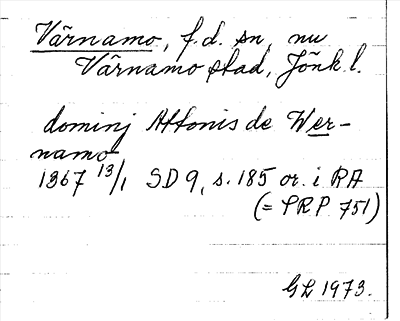 Värnamo, f.d. sn, nu
Värnamo stad, Jönk l.
dominj Attonis de Wer-
namo
1367 13/1 SD 9, s. 185 or. i RA
(= PRP 751)
GL 1973.